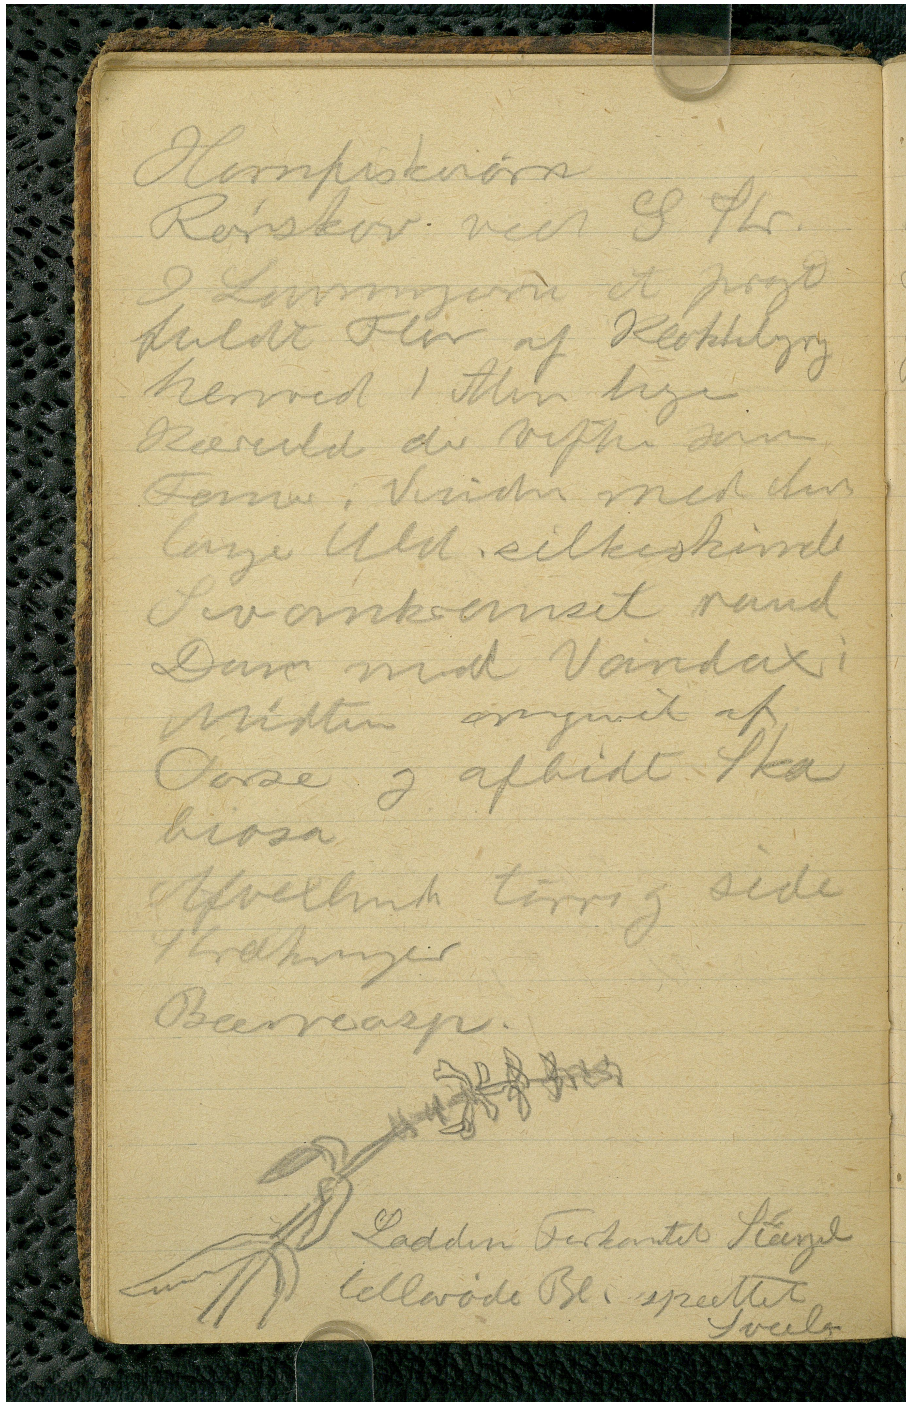 Hornfiskeiörn
Rørskov ved S Str.
I Lavningerne et pragt
fuldt Flor af Klokkelyng
herved 1 Alen høje
Kæruld der vifte som
Faner i Vinden med den
lange Uld silkeskinnende
Sivomkranset rund
Dam med Vandax i
Midten omgivet af
Porse og afbidt Ska
biosa
Afvexlende tørre og side
Strækninger
Bævreasp.
Lodden Firkantet Stængel
lillarøde Bl. spættet